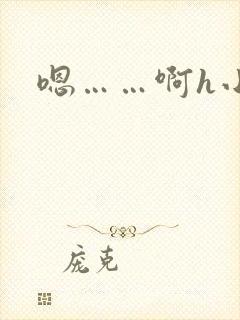 嗯……啊h
庞克